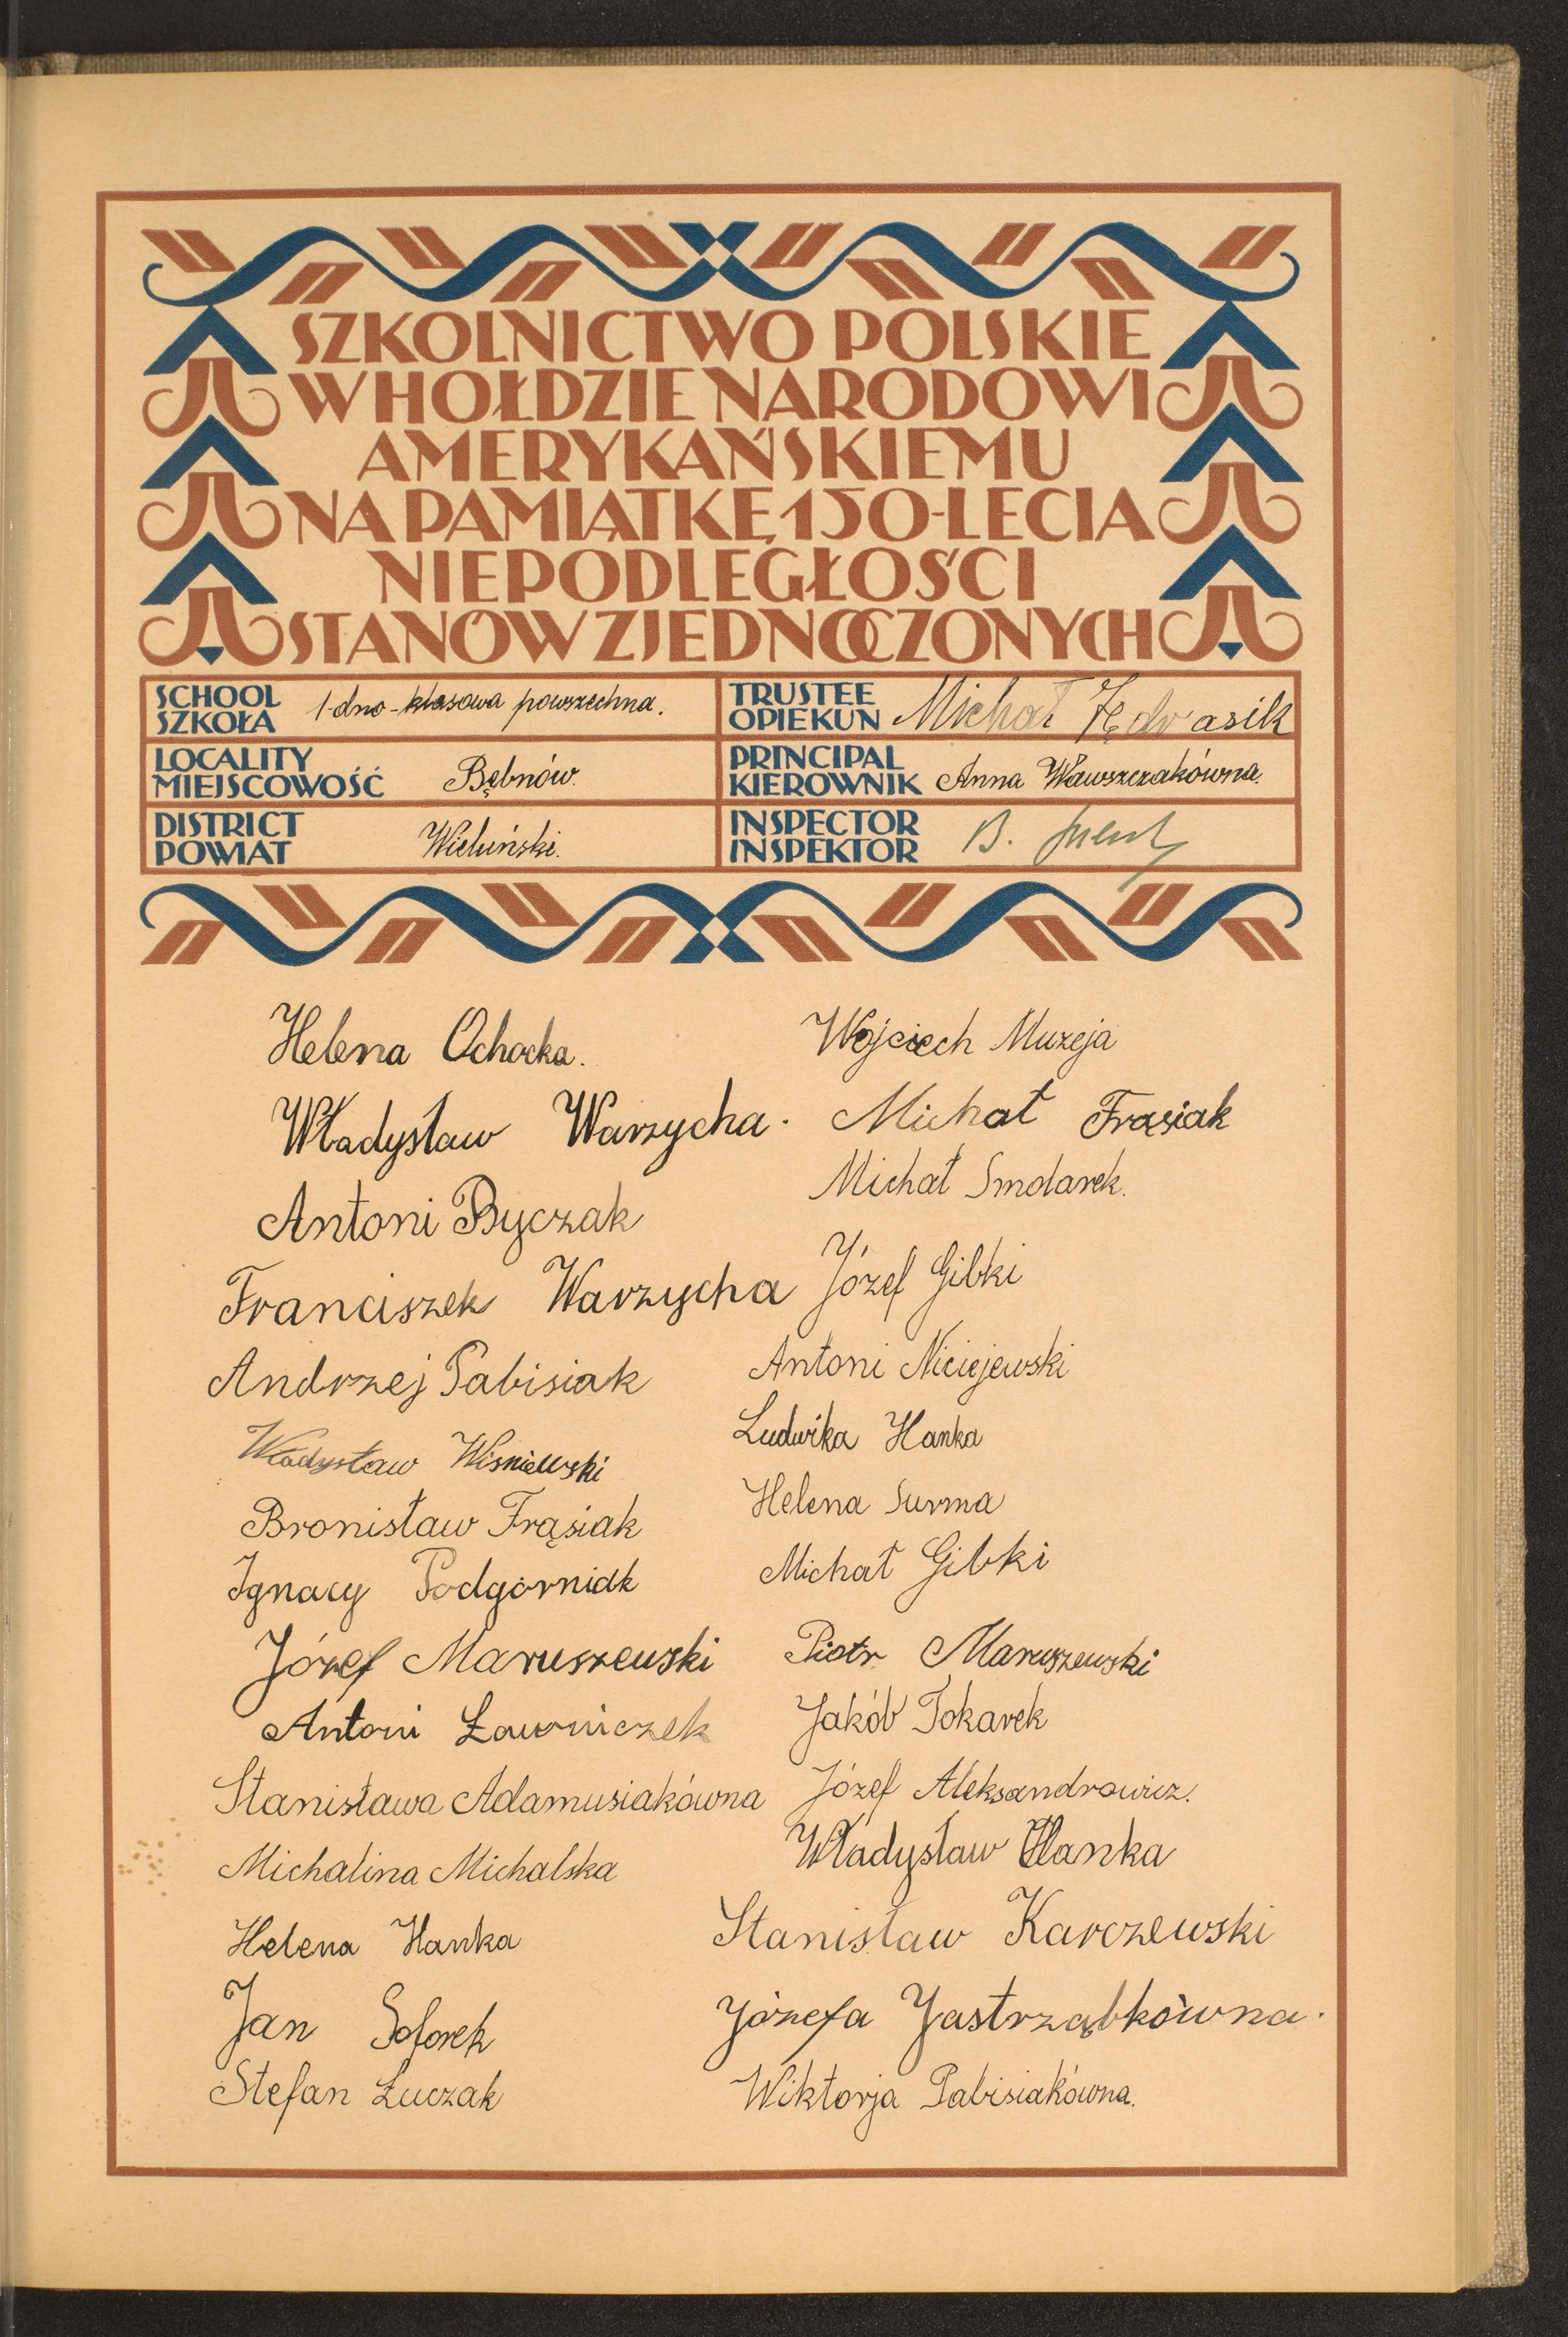 SZKOLNICTWO POLSKIE
W HOŁDZIE NARODOWI
AMERYKAŃSKIEMU
NA PAMIĄTKĘ 150-LECIA
NIEPODLEGŁOŚCI
STANÓW ZJEDNOCZONYCH
SCHOOL
SZKOŁA
1-dno-klasowa powszechna.
TRUSTEE
OPIEKUN
Michał Jędrasik
LOCALITY
MIEJSCOWOŚĆ
Bębnów.
PRINCIPAL
KIEROWNIK
Anna Wawszczakówna.
DISTRICT
POWIAT
Wieluński.
INSPECTOR
INSPEKTOR
B.
Helena Ochocka.
Władysław Warzycha.
Antoni Byczak
Franciszek Warzycha
Andrzej Pabisiak
Władysław Wiśniewski
Bronisław Frąsiak
Ignacy Podgórniak
Józef Maruszewski
Antoni Ławniczek
Stanisława Adamusiakówna
Michalina Michalska
Helena Hanka
Jan
Stefan Łuczak
Wojciech Muzeja
Michał Frąsiak
Michał Smolarek.
Józef Gibki
Antoni Niciejewski
Ludwika Hanka
Helena Surma
Michał Gibki
Piotr Maruszewski
Jakób Tokarek
Józef Aleksandrowicz.
Władysław Hanka
Stanisław Karczewski
Józefa Jastrząbkówna.
Wiktorja Pabisiakówna.